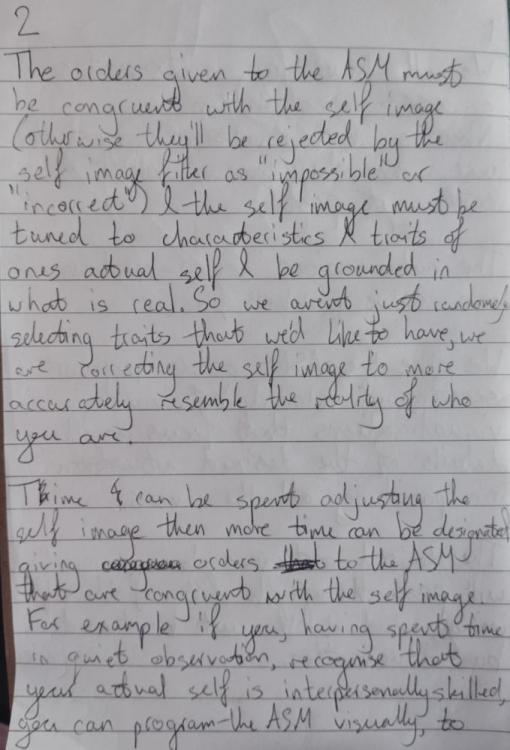 2
The orders given to the ASM must
be congruent with the self image
(otherwise they'll be rejected by the
self image filter as "impossible" or
"incorrect") & the self image must be
tuned to characteristics & traits of
ones actual self & be grounded in
what is real. So we arent just randomly
selecting traits that we'd like to have, we
are correcting the self image to more
accurately resemble the reality of who
you are.
Time & can be spent adjusting the
self image then more time can be designated
giving orders to the ASM
that are congruent with the self image.
For example if you, having spent time
in quiet observation, recognise that
your actual self is interpersonally skilled,
you can program the ASM visually, to